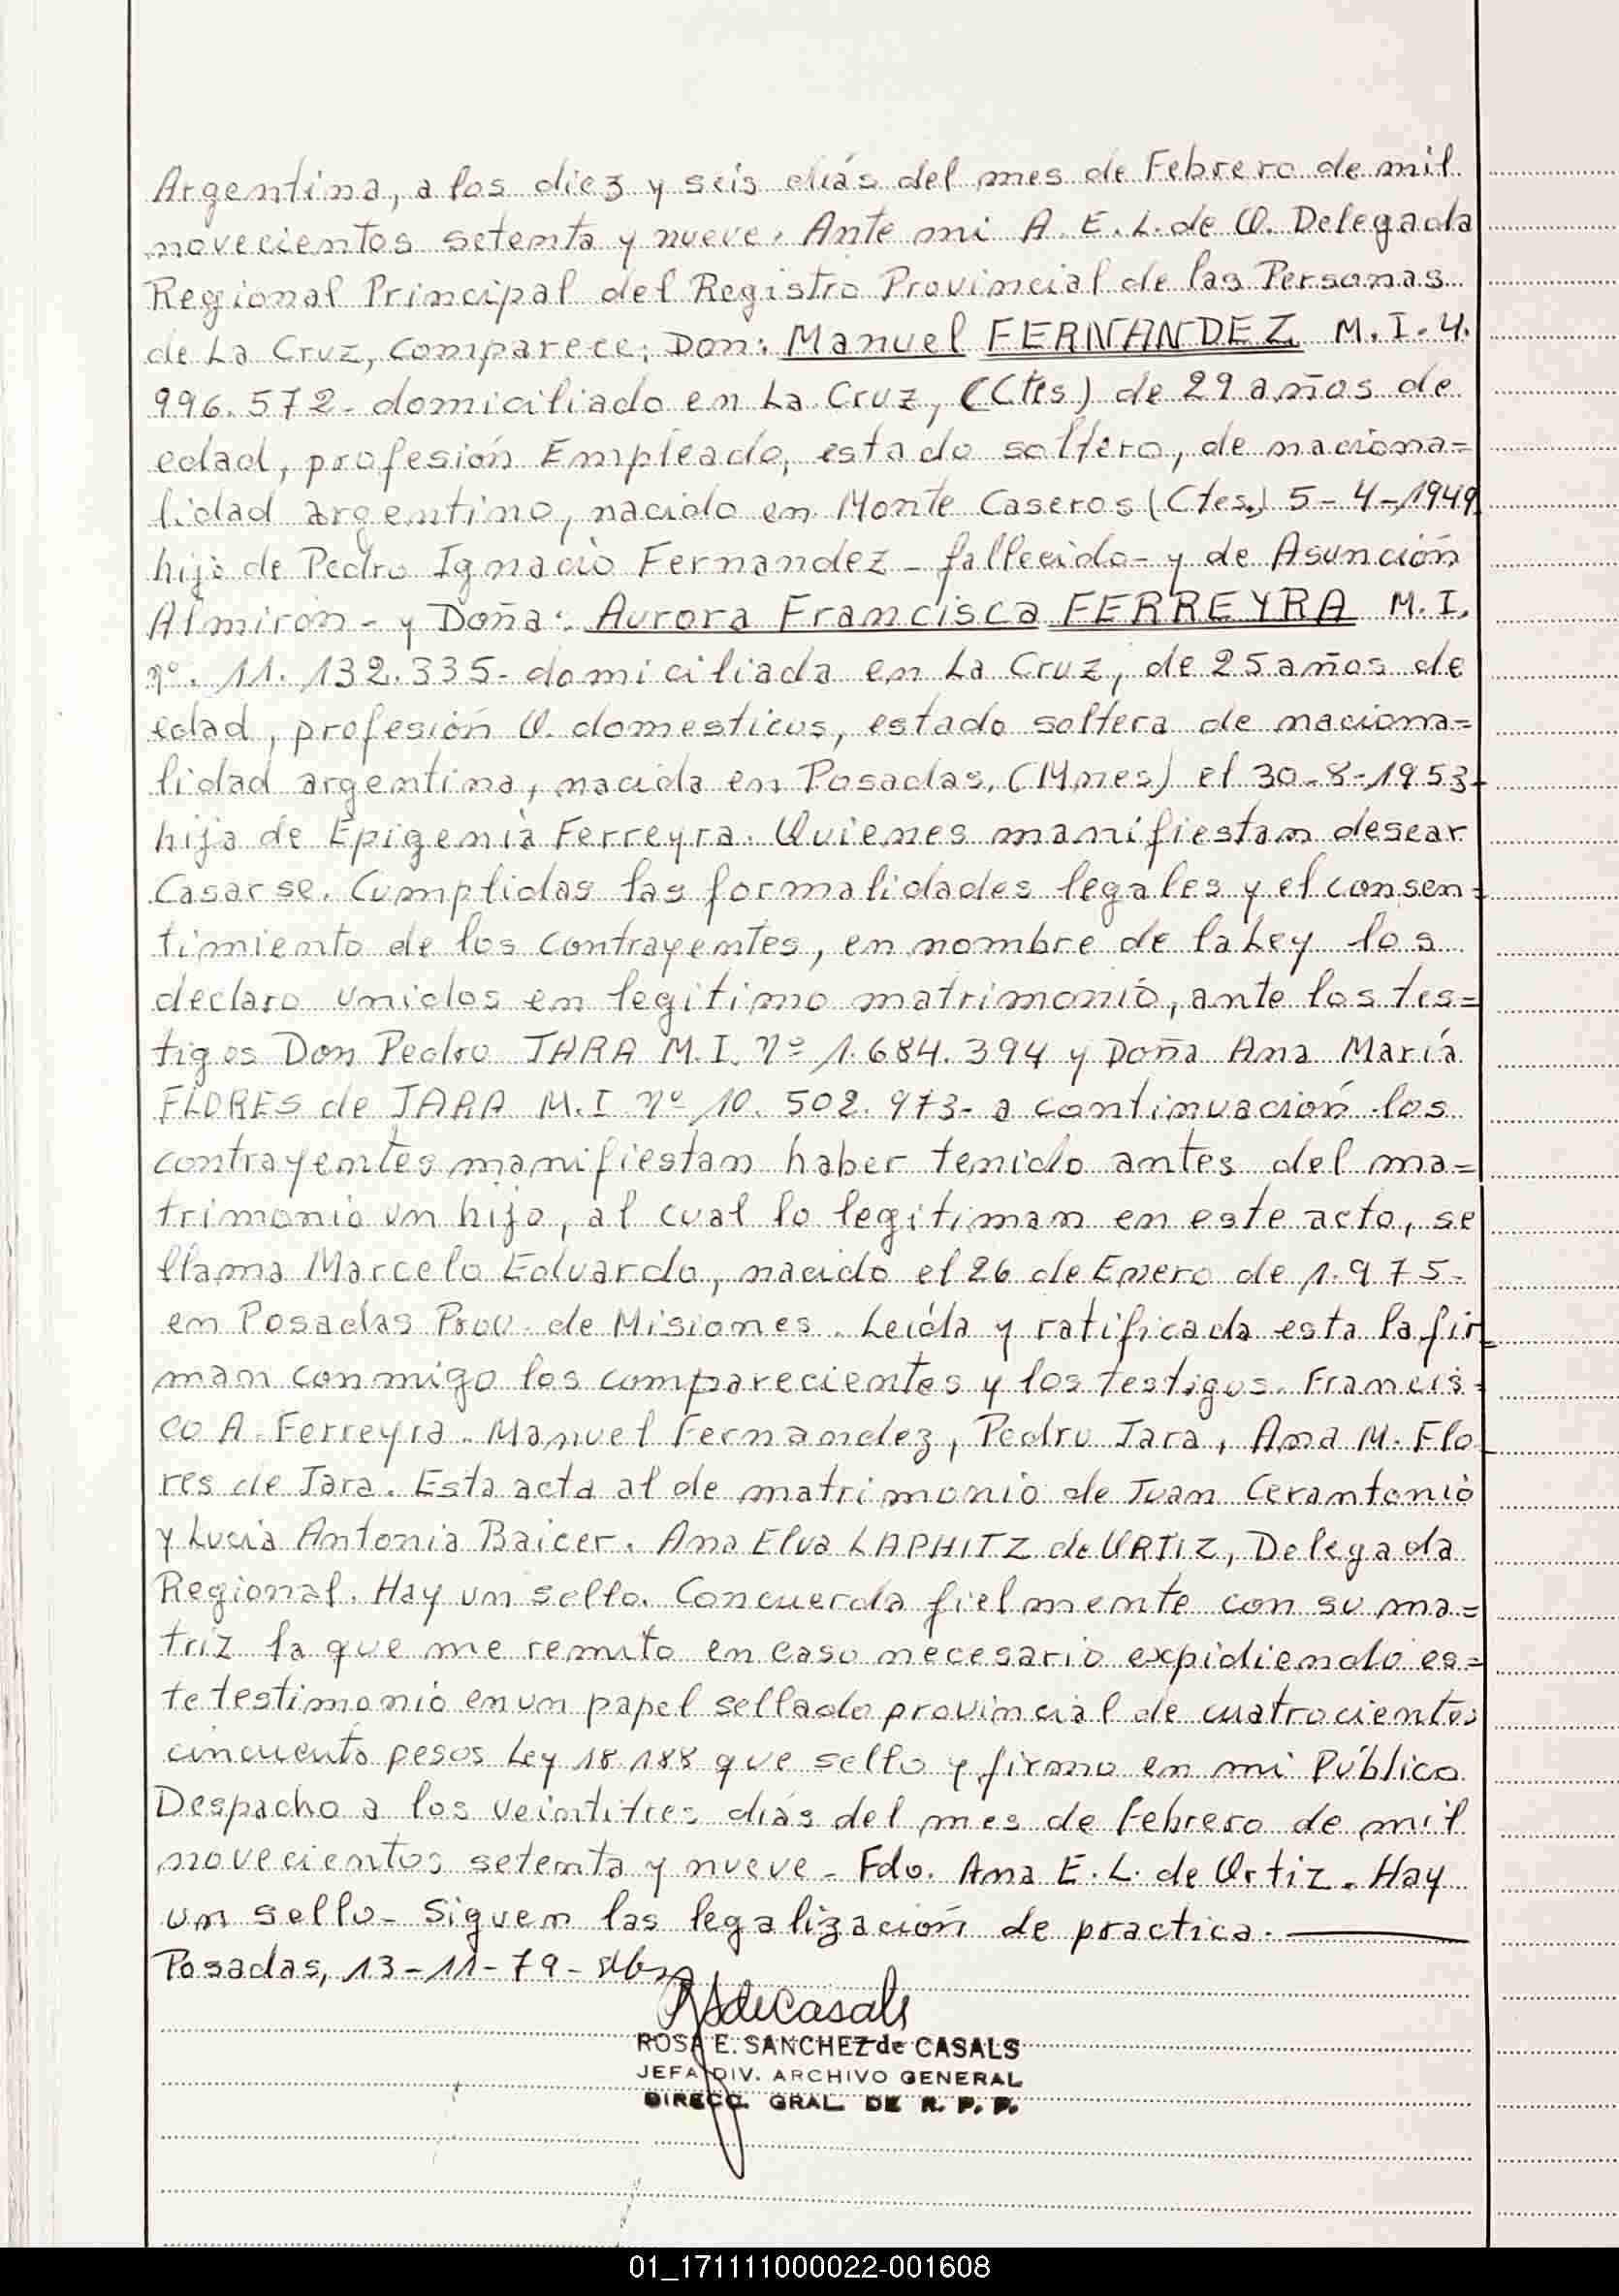 Argentina, a los diez y seis días del mes de Febrero de mil
novecientos setenta y nueve. Ante mi A. E. L. de O. Delegada
Regional Principal del Registro Provincial de las Personas
de La Cruz, comparece; Don: Manuel FERNANDEZ M. I. 4.
996.572- domiciliado en La Cruz, (Ctes) de 29 años de
edad, profesión Empleado, estado soltero, de naciona=
lidad argentino, nacido en Monte Caseros (Ctes.) 5-4-1949
hijo de Pedro Ignacio Fernandez - fallecido- y de Asunción
Almirón - y Doña: Aurora Francisca FERREYRA M. I.
nº. 11. 132.335- domiciliada en La Cruz, de 25 años de
edad, profesión Q. domesticos, estado soltera de naciona=
lidad argentina, nacida en Posadas, (Mnes) el 30-8-1953-
hija de Epigenia Ferreyra. Quienes manifiestan desear
Casarse. Cumplidas las formalidades legales y el consen=
timiento de los contrayentes, en nombre de la Ley los
declaro unidos en legitimo matrimonio, ante los tes=
tigos Don Pedro JARA M. I. nº 1.684.394 y Doña Ana María
FLORES de JARA M. I nº 10. 502. 973- a continuación los
contrayentes manifiestan haber tenido antes del ma=
trimonio un hijo, al cual lo legitiman en este acto, se
llama Marcelo Eduardo, nacido el 26 de Enero de 1.975-
en Posadas Prov. de Misiones. Leída y ratificada esta la fir
man conmigo los comparecientes y los testigos. Francis=
co A. Ferreyra. Manuel Fernandez, Pedro Jara, Ana M. Flo
res de Jara. Esta acta al de matrimonio de Juan Cerantonio
y Lucia Antonia Baicer. Ana Elva LAPHITZ de URTIZ, Delegada
Regional. Hay un sello. Concuerda fielmente con su ma=
triz la que me remito en caso necesario expidiendo es=
te testimonio en un papel sellado provincial de cuatrocientos
cincuenta pesos Ley 18.188 que sello y firmo en mi Público
Despacho a los veintitres días del mes de Febrero de mil
novecientos setenta y nueve - Fdo. Ana E. L. de Urtiz. Hay
un sello- Siguen las legalización de practica.
Posadas, 13-11-79-
ROSA E. SANCHEZ de CASALS
JEFA DIV. ARCHIVO GENERAL
DIRECC. GRAL DE R. P. P.
01_171111000022-001608